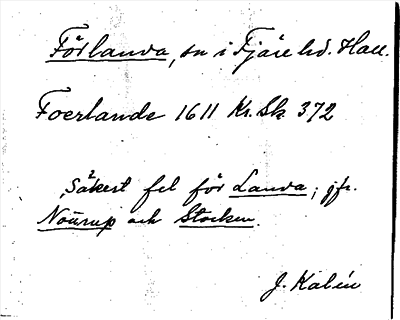 Förlanda, sn i Fjäre hd. Hall.
Foerlande 1611 Kr. Sk 372
Säkert fel för Landa; jfr.
Norrup och Stocken.
J. Kalén